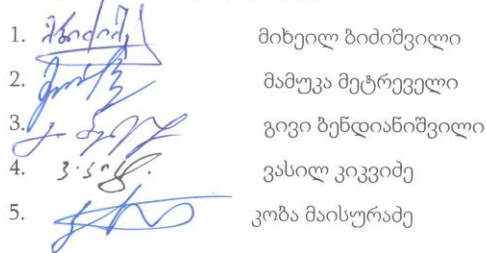 1. მიხეილ ბიძიშვილი
2. მამუკა მეტრეველი
3. გივი ზენდიანიშვილი
4. ვასილ კიკვიძე
5. კობა მაისურაძე